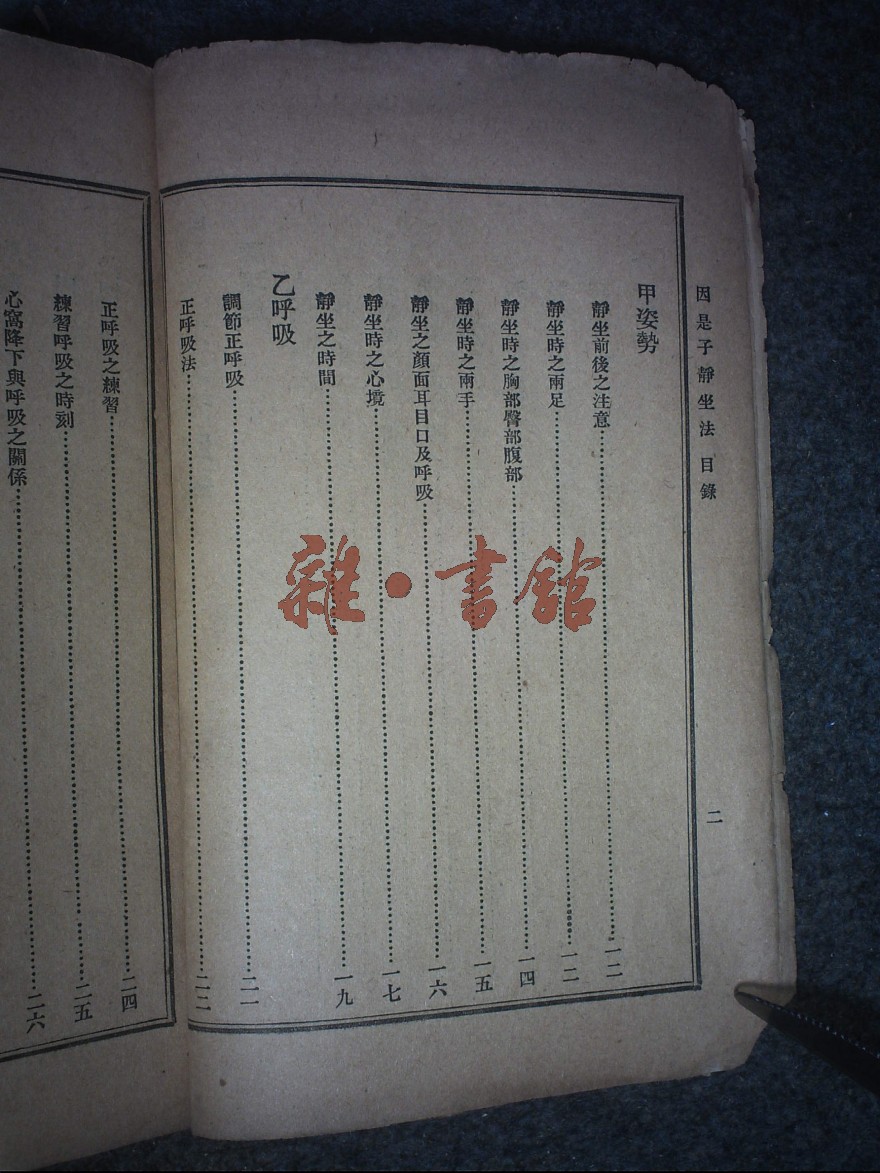 因是子靜坐法 目錄 二
甲姿勢
靜坐前後之注意 一二
靜坐時之兩足 一二
靜坐時之胸部臀部腹部 一四
靜坐時之兩手 一五
靜坐之顏面耳目口及呼吸 一六
靜坐時之心境 一七
靜坐之時間 一九
乙呼吸
調節正呼吸 二一
正呼吸法 二二
正呼吸之練習 二四
練習呼吸之時刻 二五
心窩降下與呼吸之關係 二六
雜·書館